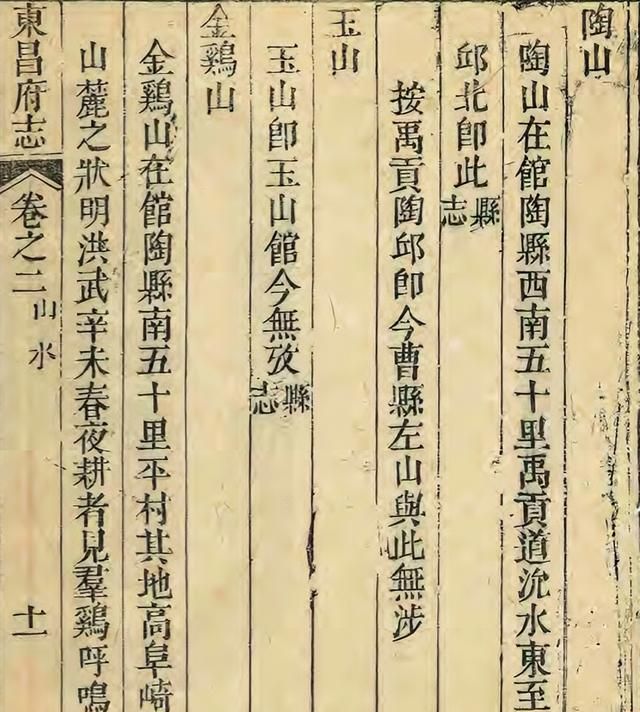 陶山
陶山在館陶縣西南五十里禹貢道沇水東至
邱北卽此縣志
按禹貢陶邱卽今曹縣左山與此無涉
玉山
玉山卽玉山館今無攷縣志
金鷄山
金鷄山在館陶縣南五十里平村其地高阜崎
山麓之狀明洪武辛未春夜耕者見羣鷄呼鳴
東昌府志
卷之二
山水
十一